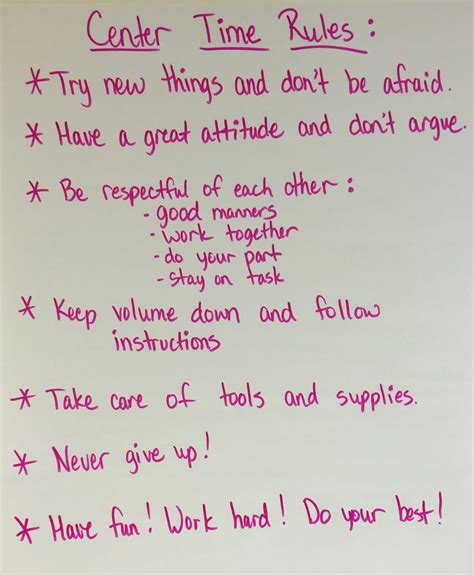 Center Time Rules:
* Try new things and don't be afraid.
* Have a great attitude and don't argue.
* Be respectful of each other:
- good manners
- work together
- do your part
- stay on task
* Keep volume down and follow
instructions
* Take care of tools and supplies.
* Never give up!
* Have fun! Work hard! Do your best!